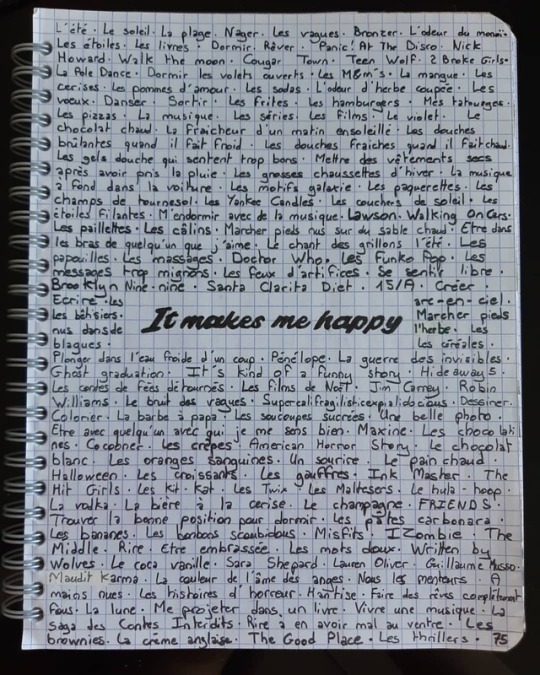 L'été · Le soleil · La plage · Nager · Les vagues · Bronzer · L'odeur du monoï ·
Les étoiles · Les livres · Dormir · Rêver · Panic! At The Disco · Nick
Howard · Walk the moon · Cougar Town · Teen Wolf · 2 Broke Girls ·
La Pole Dance · Dormir les volets ouverts · Les M&m's · La mangue · Les
cerises · Les pommes d'amour · Les sodas · L'odeur d'herbe coupée · Les
voeux · Danser · Sortir · Les frites · Les hamburgers · Mes tatouages ·
Les pizzas · La musique · Les séries · Les films · Le violet · Le
chocolat chaud · La fraîcheur d'un matin ensoleillé · Les douches
brûlantes quand il fait froid · Les douches fraîches quand il fait chaud ·
Les gels douche qui sentent trop bons · Mettre des vêtements secs
après avoir pris la pluie · Les grosses chaussettes d'hiver · La musique
à fond dans la voiture · Les motifs galaxie · Les paquerettes · Les
champs de tournesol · Les Yankee Candles · Les couchers de soleil · Les
étoiles filantes · M'endormir avec de la musique · Lawson · Walking On Cars ·
Les paillettes · Les câlins · Marcher pieds nus sur du sable chaud · Etre dans
les bras de quelqu'un que j'aime · Le chant des grillons l'été · Les
papouilles · Les massages · Doctor Who · Les Funko Pop · Les
messages trop mignons · Les feux d'artifices · Se sentir libre ·
Brooklyn Nine-nine · Santa Clarita Diet · 15/A · Créer ·
Ecrire · les arc-en-ciel ·
Les bêtisiers · Marcher pieds
nus dans de l'herbe · Les
blagues · Les céréales ·
It makes me happy
Plonger dans l'eau froide d'un coup · Pénélope · La guerre des invisibles ·
Ghost graduation · It's kind of a funny story · Hideaways ·
Les contes de fées détournés · Les films de Noël · Jim Carrey · Robin
Williams · Le bruit des vagues · Supercalifragilisticexpialidocious · Dessiner ·
Colorier · La barbe à papa · Les soucoupes sucrées · Une belle photo ·
Etre avec quelqu'un avec qui je me sens bien · Maxine · Les chocolati
nes · Cocooner · Les crêpes · American Horror Story · Le chocolat
blanc · Les oranges sanguines · Un sourire · Le pain chaud ·
Halloween · Les croissants · Les gauffres · Ink Master · The
Hit Girls · Les Kit Kat · Les Twix · Les Maltesers · Le hula-hoop
La vodka · La bière à la cerise · Le champagne · FRIENDS ·
Trouver la bonne position pour dormir · Les pâtes carbonara ·
Les bananes · Les bonbons scoubidous · Misfits · IZombie · The
Middle · Rire · Etre embrassée · Les mots doux · Written by
Wolves · Le coca vanille · Sara Shepard · Lauren Oliver · Guillaume Musso ·
Maudit Karma · La couleur de l'âme des anges · Nous les menteurs · A
mains nues · Les histoires d'horreur · Hantise · Faire des rêves complètement
fous · La lune · Me projeter dans un livre · Vivre une musique · La
saga des Contes Interdits · Rire à en avoir mal au ventre · Les
brownies · La crème anglaise · The Good Place · Les thrillers · 75